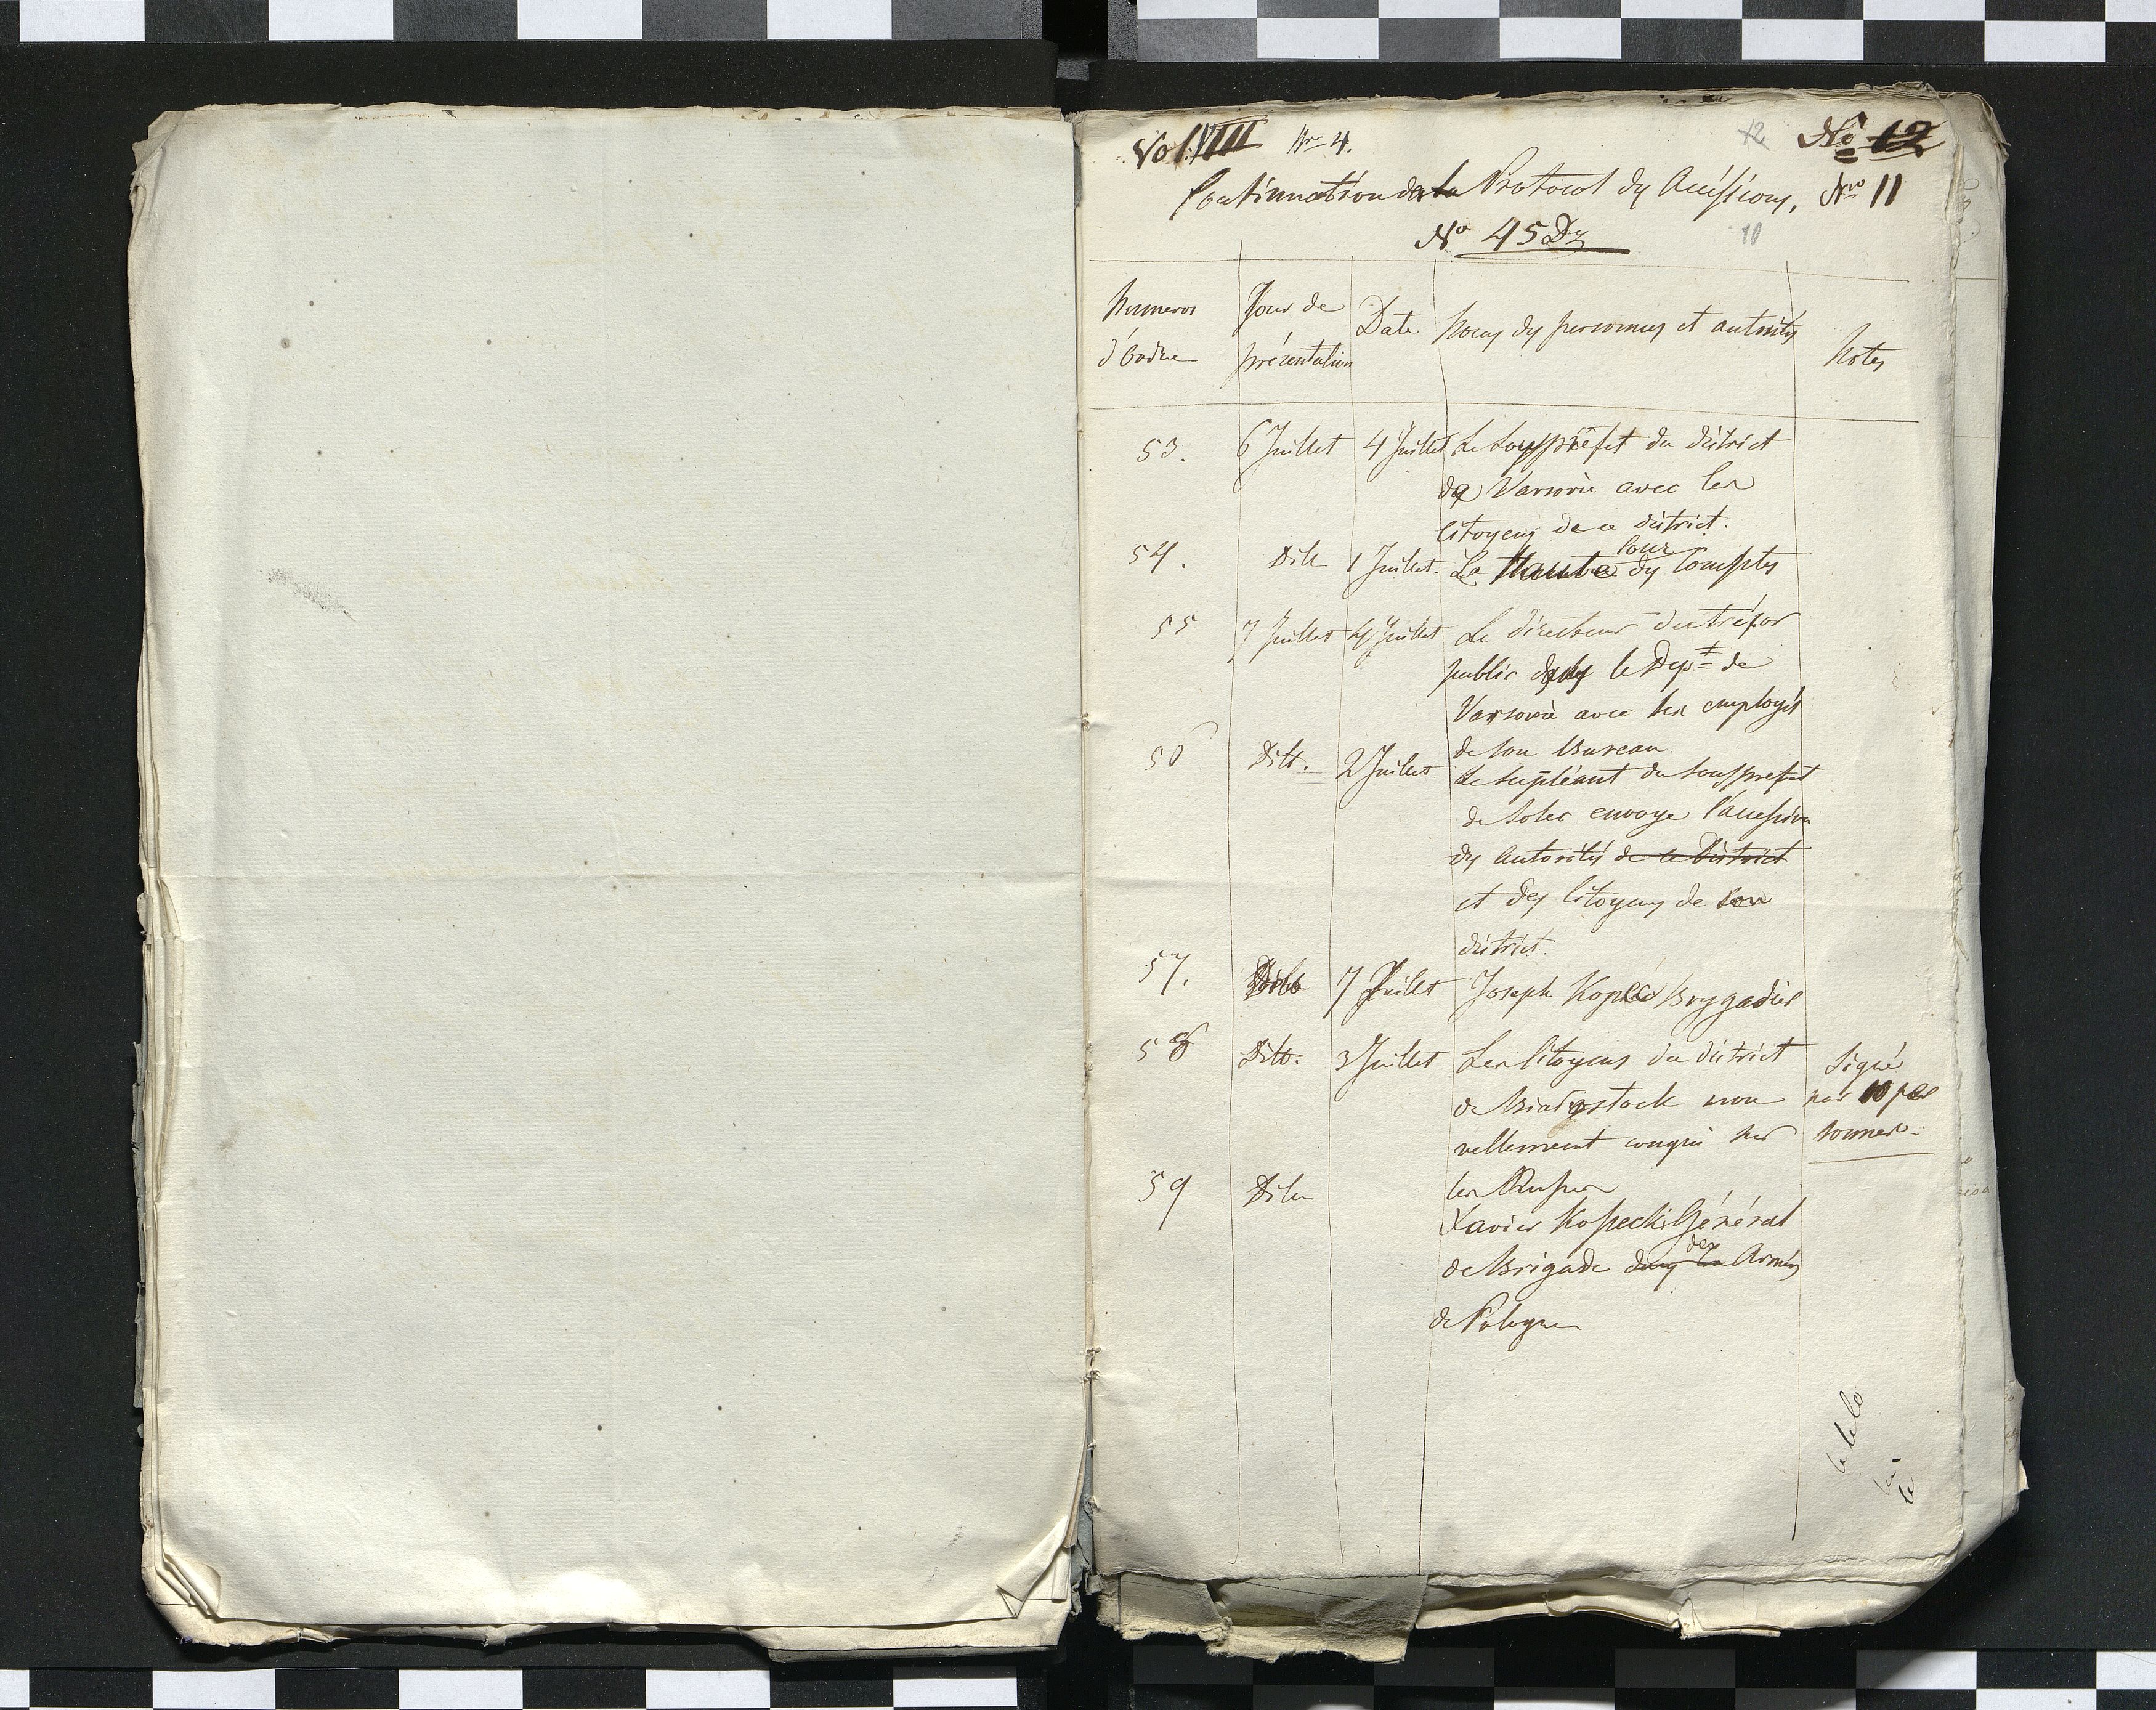 Vol. VIII Nr 4. 12 No 12
Continuation de la Protocol des Accessions, Nro 11
No 45 Dy 10
Numeros d'ordre
Jour de présentation
Date
Noms des personnes et autorités
Notes
53. 6 Juillet 4 Juillet Le Sousprefet du district
de Varsovie avec les
Citoyens de ce district.
54. Ditto 1 Juillet. La Haute Cour des Comptes
55 7 Juillet 4 Juillet Le directeur du trésor
public dans le Dept de
Varsovie avec les employés
de son Bureau.
56 Ditt. 2 Juillet. Le supléant du Sousprefet
de Solec envoye l'accession
des Autorités de ce District
et des Citoyens de son
district.
57. Ditto 7 Juillet Joseph Kopec Brygadier
58 Ditto. 3 Juillet Les Citoyens du district Signé
de Białystock nou par 10 per
vellement conquis sur sonnes.
les Russes
59 Ditto
Xavier Kosecki Général
de Brigade dans les des Armées
de Pologne
le le lo
le